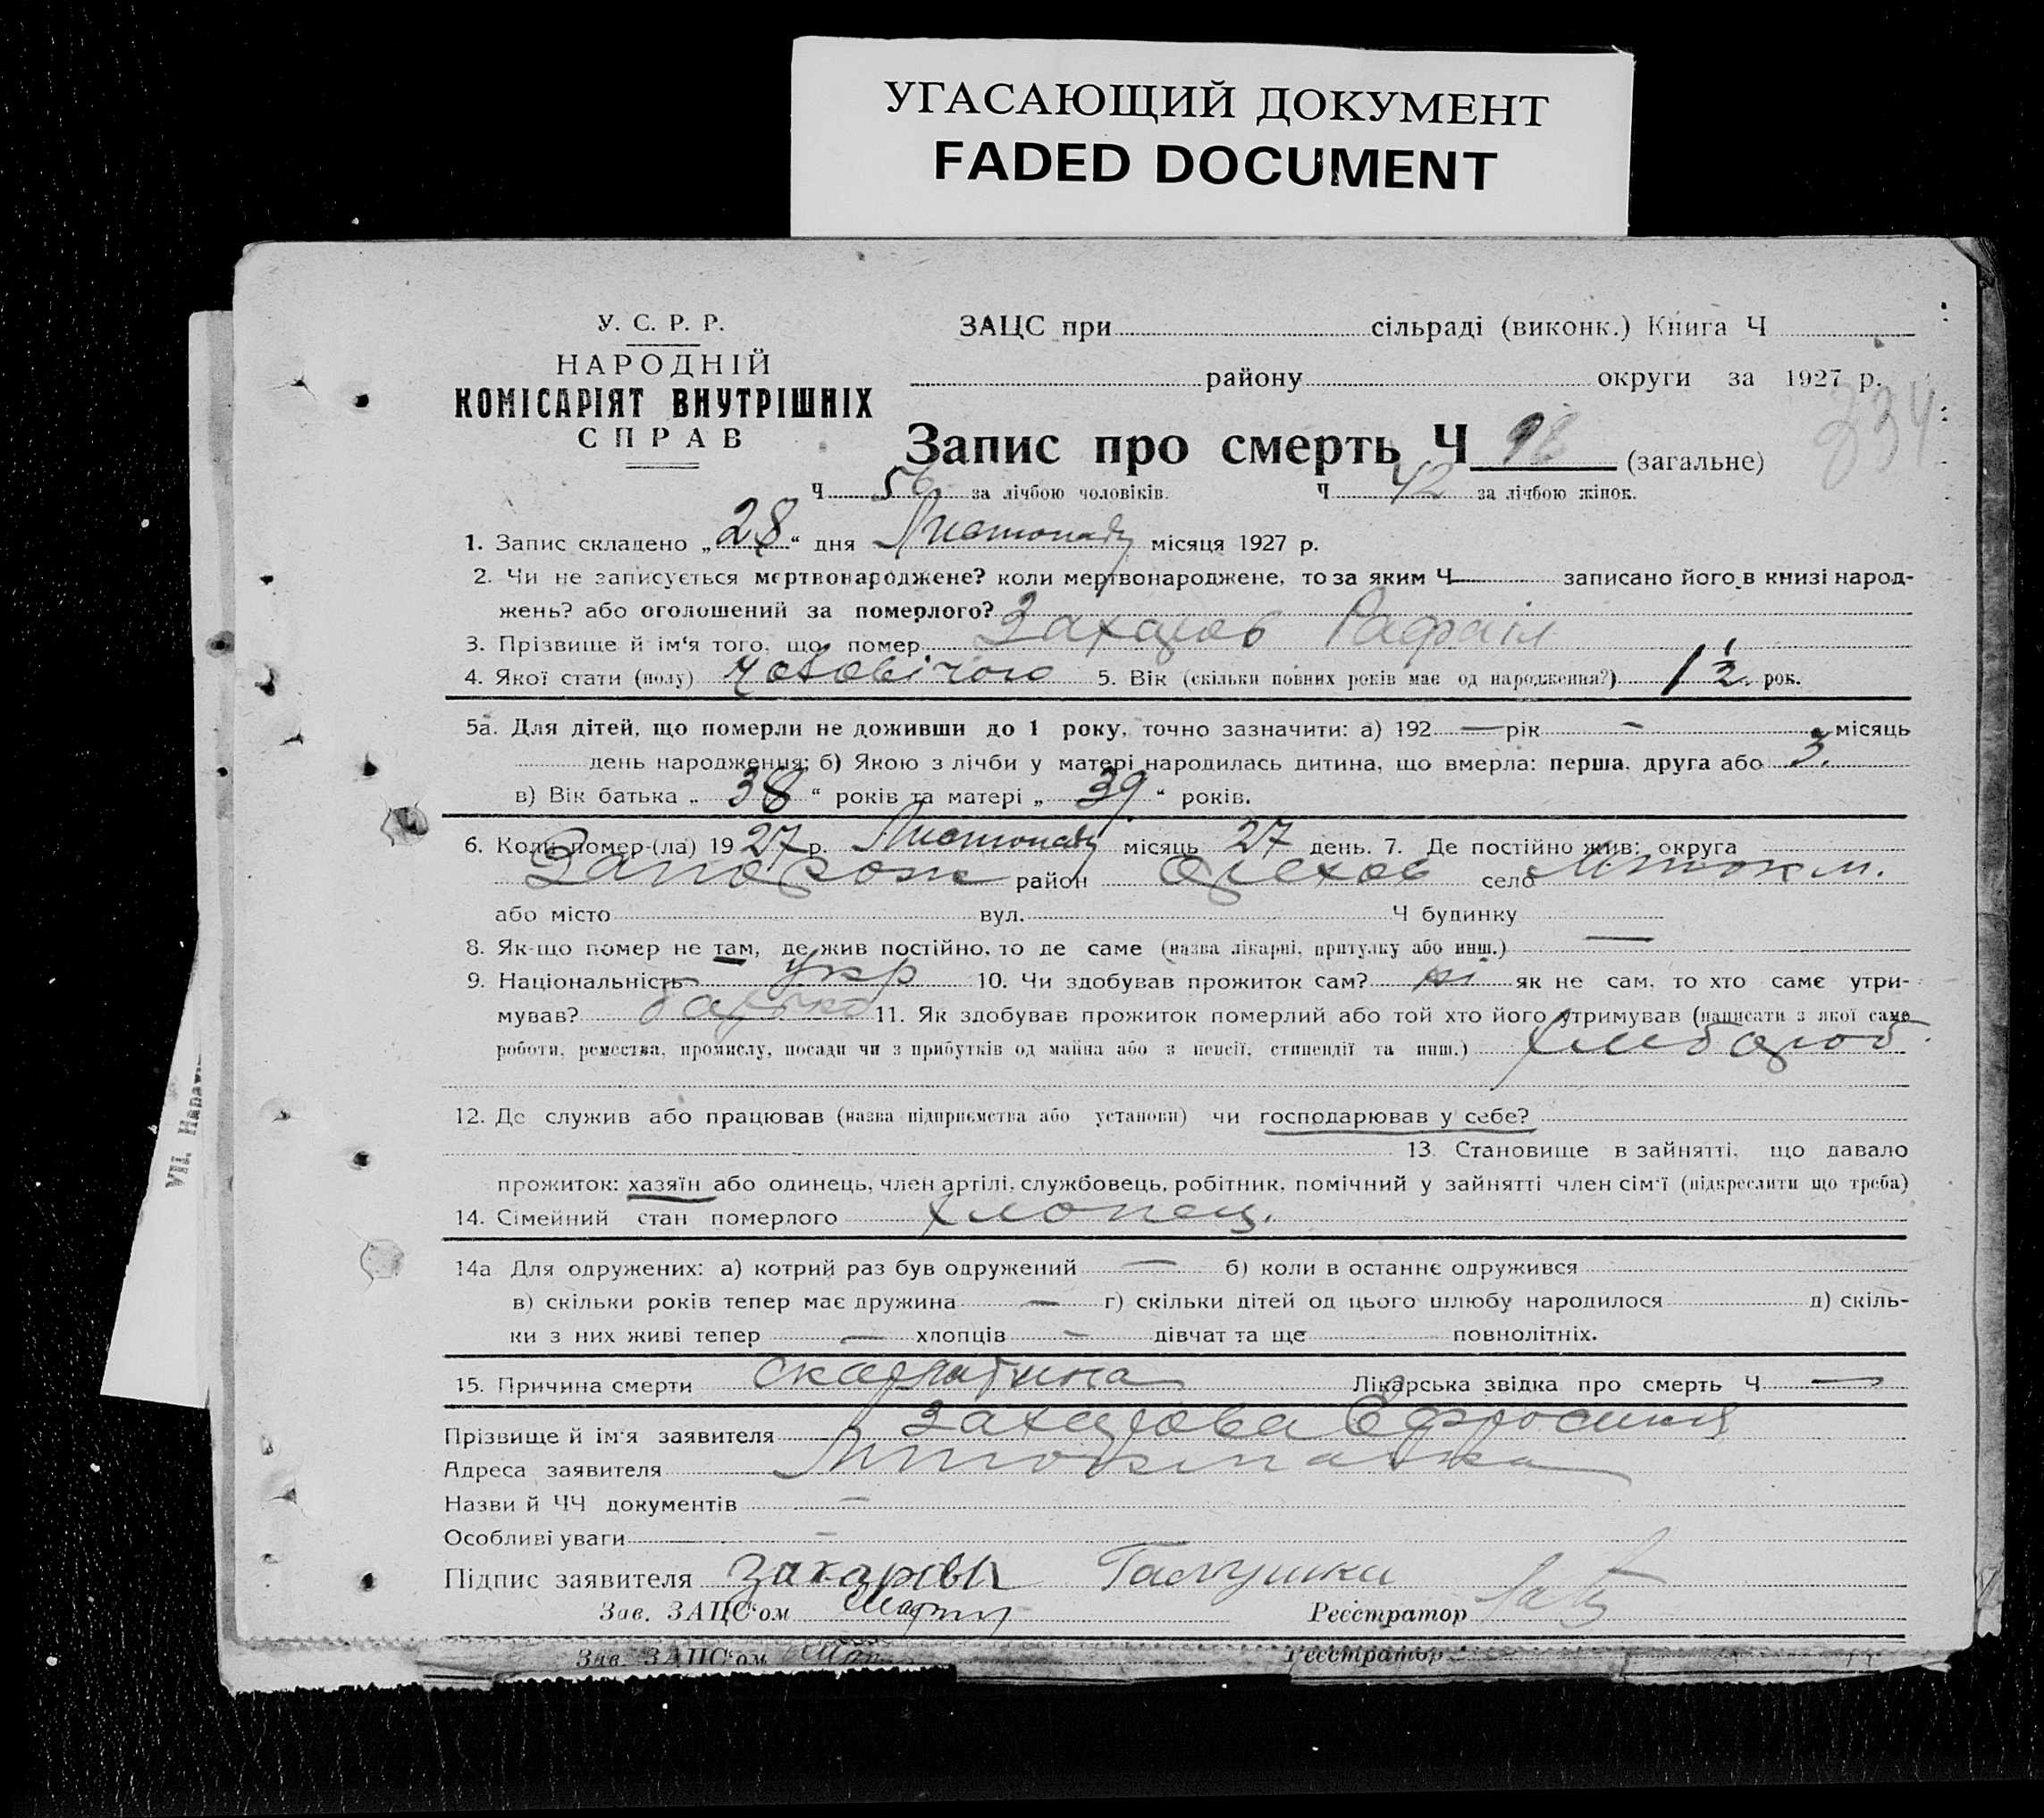 УГАСАЮЩИЙ ДОКУМЕНТ
FADED DOCUMENT
У. С. Р. Р.
НАРОДНІЙ
КОМІСАРІЯТ ВНУТРІШНІХ
СПРАВ
ЗАЦС при сільраді (виконк.) Книга Ч
району округи за 1927 р.
334
Запис про смерть Ч 98 (загальне)
Ч 56 за лічбою чоловіків. Ч 42 за лічбою жінок.
1. Запис складено „28“ дня Листопаду місяця 1927 р.
2. Чи не записується мертвонароджене? коли мертвонароджене, то за яким Ч записано його в книзі народ-
жень? або оголошений за померлого?
3. Прізвище й ім‘я того, що помер Захаров Рафаіл
4. Якої стати (полу) чоловічого 5. Вік (скільки повних років має од народження?) 1 1/2 рок.
5а. Для дітей, що померли не доживши до 1 року, точно зазначити: а) 192 — рік - місяць
день народження; б) Якою з лічби у матері народилась дитина, що вмерла: перша, друга або 3.
в) Вік батька „38“ років та матері „39“ років.
6. Коли помер-(ла) 1927 р. Листопаду місяць 27 день. 7. Де постійно жив: округа
Запорож район Орехов село М. Токм.
або місто вул. Ч будинку
8. Як-що помер не там, де жив постійно, то де саме (назва лікарні, притулку або инш.) —
9. Національність укр 10. Чи здобував прожиток сам? ні як не сам, то хто саме утри-
мував? батько 11. Як здобував прожиток померлий або той хто його утримував (написати з якої саме
роботи, ремества, промислу, посади чи з прибутків од майна або з пенсії, стипендії та инш.) хлибороб.
12. Де служив або працював (назва підприємства або установи) чи господарював у себе?
13. Становище в зайнятті, що давало
прожиток: хазяїн або одинець, член артілі, службовець, робітник, помічний у зайнятті член сім‘ї (підкреслити що треба)
14. Сімейний стан померлого хлопец.
14а Для одружених: а) котрий раз був одружений — б) коли в останнє одружився
в) скільки років тепер має дружина — г) скільки дітей од цього шлюбу народилося д) скіль-
ки з них живі тепер — хлопців - дівчат та ще повнолітніх.
15. Причина смерти скарлатина Лікарська звідка про смерть Ч —
Прізвище й ім‘я заявителя Захарова Ефросиния
Адреса заявителя
Назви й ЧЧ документів —
Особливі уваги —
Підпис заявителя Захарова Галушки
Зав. ЗАЦС‘ом Реєстратор
Зав. ЗАЦС‘ом Реєстратор
VII.